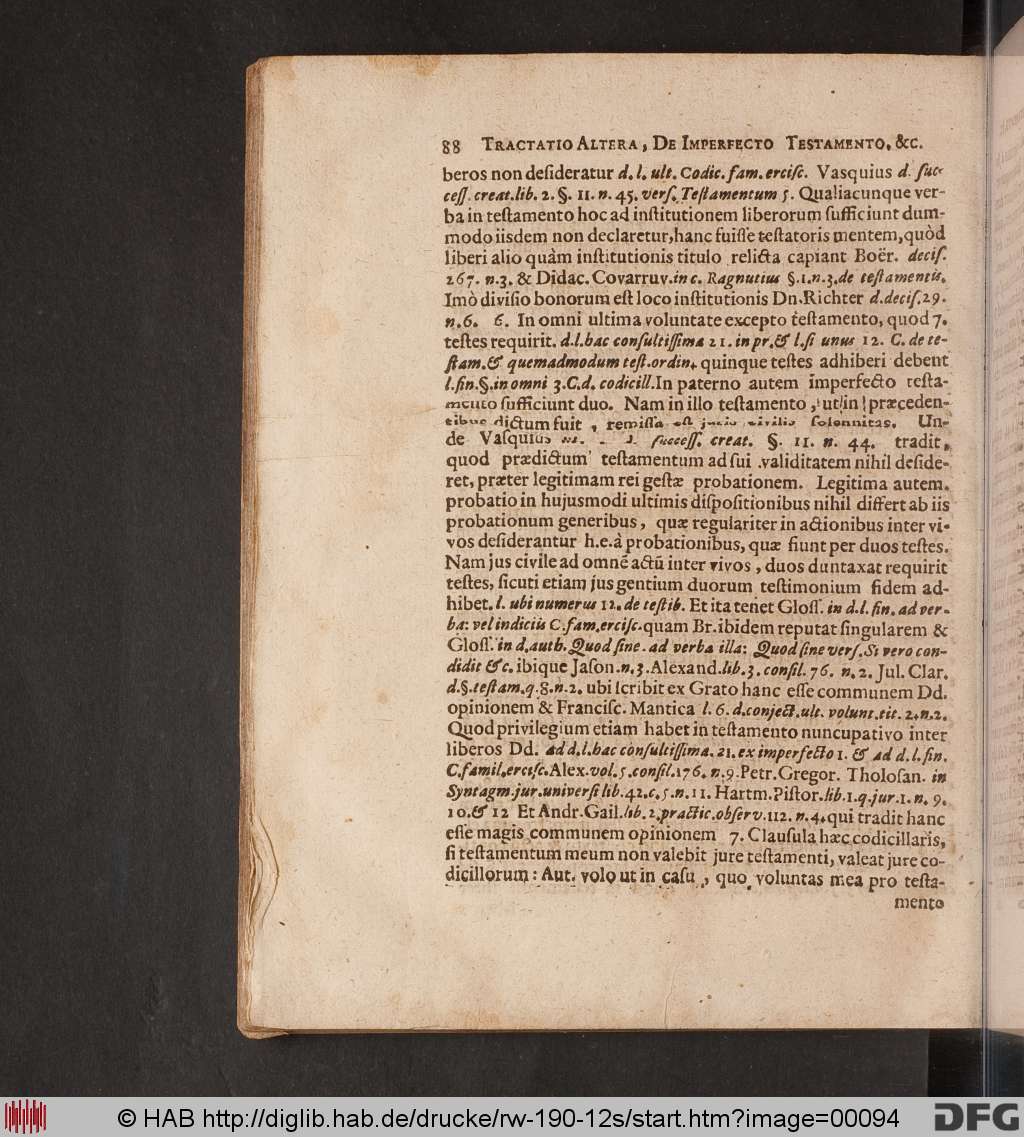 88 TRACTATIO ALTERA, DE IMPERFECTO TESTAMENTO, &c.
beros non deſideratur d. l. ult. Codic. fam. erciſc. Vasquius d. ſuc-
ceſſ. creat. lib. 2. §. 11. n. 45. verſ. Teſtamentum 5. Qualiacunque ver-
ba in teſtamento hoc ad inſtitutionem liberorum ſufficiunt dum-
modo iisdem non declaretur, hanc fuiſſe teſtatoris mentem, quòd
liberi alio quàm inſtitutionis titulo relicta capiant Boër. deciſ.
267. n.3. & Didac. Covarruv. in c. Ragnutius §.1.n.3. de teſtamentis.
Imò diviſio bonorum eſt loco inſtitutionis Dn. Richter d. deciſ. 29.
n.6. 6. In omni ultima voluntate excepto teſtamento, quod 7.
teſtes requirit. d.l. hac conſultiſſima 21. in pr. & l. ſi unus 12. C. de te-
ſtam. & quemadmodum teſt. ordin. quinque teſtes adhiberi debent
l. fin. §. in omni 3. C. d. codicill. In paterno autem imperfecto teſta-
mento ſufficiunt duo. Nam in illo teſtamento, ut in præceden-
tibus dictum fuit, remiſſa eſt juris civilis ſolennitas. Un-
de Vaſquius ſucceſſ. creat. §. 11. n. 44. tradit,
quod prædictum teſtamentum ad ſui validitatem nihil deſide-
ret, præter legitimam rei geſtæ probationem. Legitima autem.
probatio in hujusmodi ultimis diſpoſitionibus nihil differt ab iis
probationum generibus, quæ regulariter in actionibus inter vi-
vos deſiderantur h.e. à probationibus, quæ fiunt per duos teſtes.
Nam jus civile ad omnē actū inter vivos, duos duntaxat requirit
teſtes, ſicuti etiam jus gentium duorum teſtimonium fidem ad-
hibet. l. ubi numerus 12. de teſtib. Et ita tenet Gloſſ. in d.l. fin. ad ver-
ba: vel indiciis C. fam. erciſc. quam Br. ibidem reputat ſingularem &
Gloſſ. in d. auth. Quod ſine. ad verba illa: Quod ſine verſ. Si vero con-
didit &c. ibique Jaſon. n. 3. Alexand. lib. 3. conſil. 76. n. 2. Jul. Clar.
d.§. teſtam. q. 8. n. 2. ubi ſcribit ex Grato hanc eſſe communem Dd.
opinionem & Franciſc. Mantica l. 6. d. conject. ult. volunt. tit. 2. n. 2.
Quod privilegium etiam habet in teſtamento nuncupativo inter
liberos Dd. ad d. l. hac conſultiſſima. 21. ex imperfecto 1. & ad d. l. fin.
C. famil. erciſc. Alex. vol. 5. conſil. 176. n. 9. Petr. Gregor. Tholoſan. in
Syntagm. jur. univerſi lib. 42. c. 5. n. 11. Hartm. Piſtor. lib. 1. q. jur. 1. n. 9.
10. & 12 Et Andr. Gail. lib. 2. practic. obſerv. 112. n. 4. qui tradit hanc
eſſe magis communem opinionem 7. Clauſula hæc codicillaris,
ſi teſtamentum meum non valebit jure teſtamenti, valeat jure co-
dicillorum: Aut. volo ut in caſu, quo voluntas mea pro teſta-
mento
© HAB http://diglib.hab.de/drucke/rw-190-12s/start.htm?image=00094
DFG